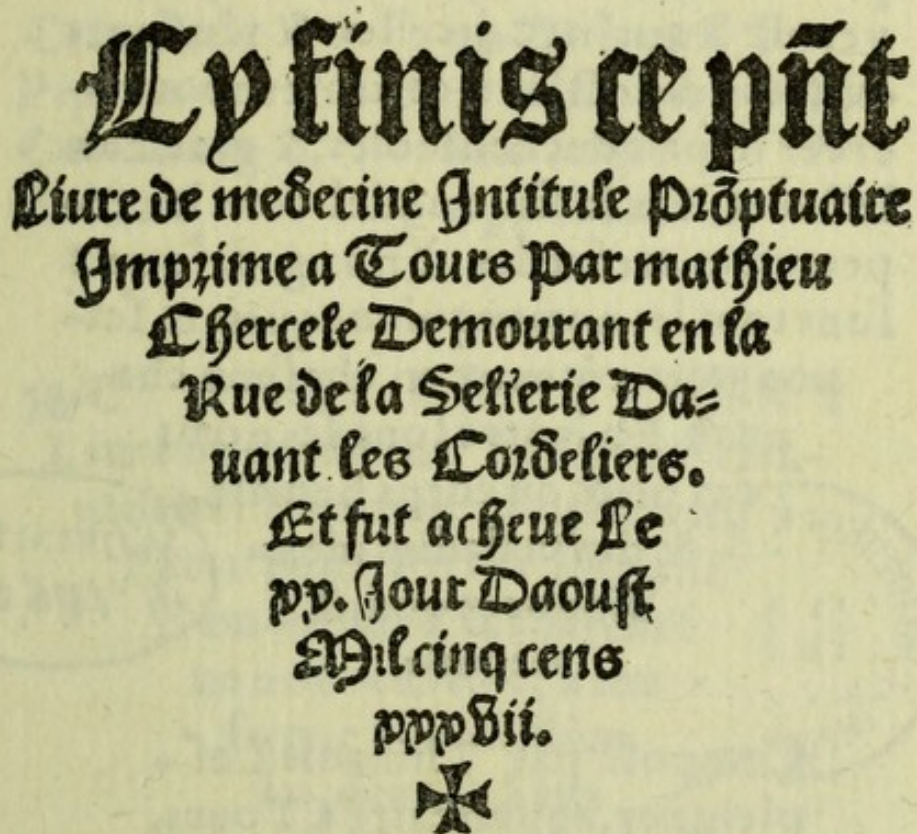 Cy finis ce pñt
Liure de medecine Intitule Prõptuaire
Imprime a Tours Par mathieu
Chercele Demourant en la
Rue de la Sellerie Da=
uant les Cordeliers.
Et fut acheue Le
xx. Jour Daoust
Mil cinq cens
xxxvii.